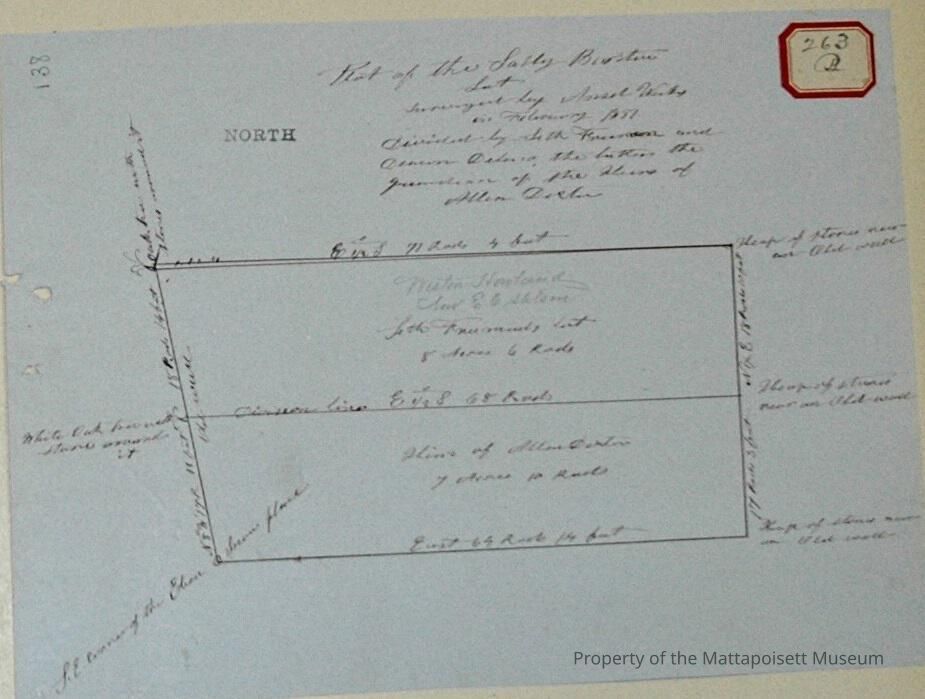 138
263
A
NORTH
Plat of the Sally
Lot
surveyed by Ansel Weeks
in February 1851
Divided by Seth Freeman and
Deacon the latter the
guardian of the Heirs of
Allen Dexter
Oak tree with
stones around it
E ½ S 71 Rods 4 feet
Heap of stones near
an Old wall
Weston Howland
Now
Seth Freemans Lot
8 Acres 6 Rods
18 Rods 14 feet
Old wall
18 Rods
Division line E ½ S 68 Rods
Heap of stones
near an Old wall
White Oak tree with
stones around
it
Heirs of Allen Dexter
7 Acres 10 Rods
11 feet
17 Rods 3 feet
East 64 Rods 14 feet
Heap of stones near
an Old wall
S.E. corner of the Eben place
Property of the Mattapoisett Museum